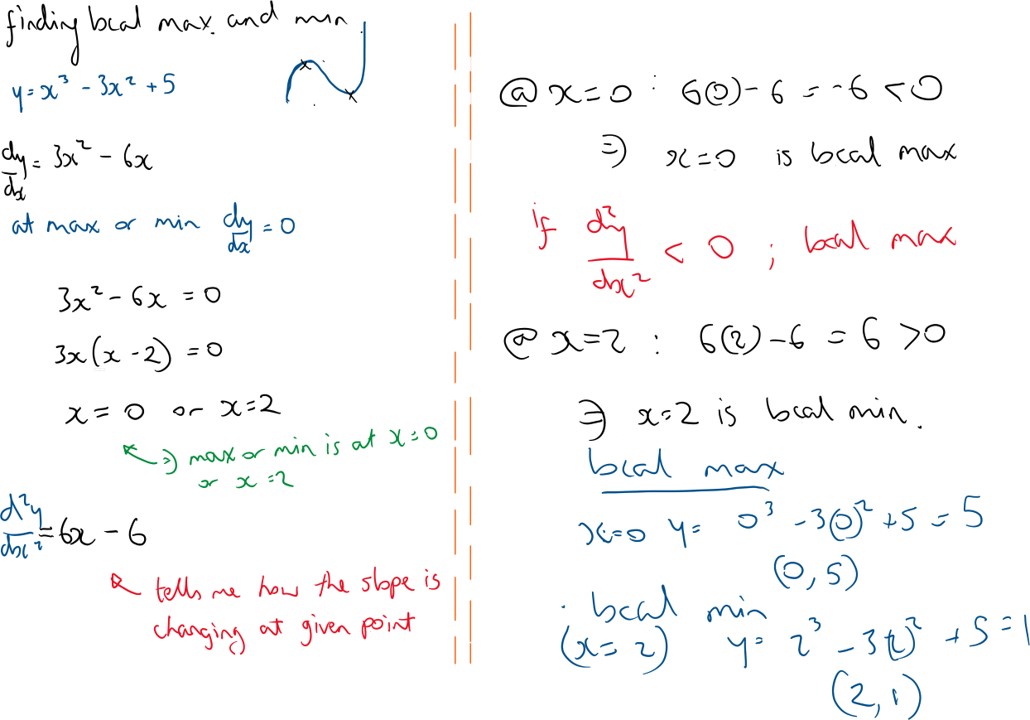 finding local max. and min
y = x³ - 3x² + 5
dy/dx = 3x² - 6x
at max or min dy/dx = 0
3x² - 6x = 0
3x(x - 2) = 0
x = 0 or x = 2
⇒ max or min is at x = 0
or x = 2
d²y/dx² = 6x - 6
tells me how the slope is
changing at given point
@ x = 0 : 6(0) - 6 = -6 < 0
⇒ x = 0 is local max
if d²y/dx² < 0 ; local max
@ x = 2 : 6(2) - 6 = 6 > 0
⇒ x = 2 is local min.
local max
x = 0 y = 0³ - 3(0)² + 5 = 5
(0, 5)
local min
(x = 2) y = 2³ - 3(2)² + 5 = 1
(2, 1)